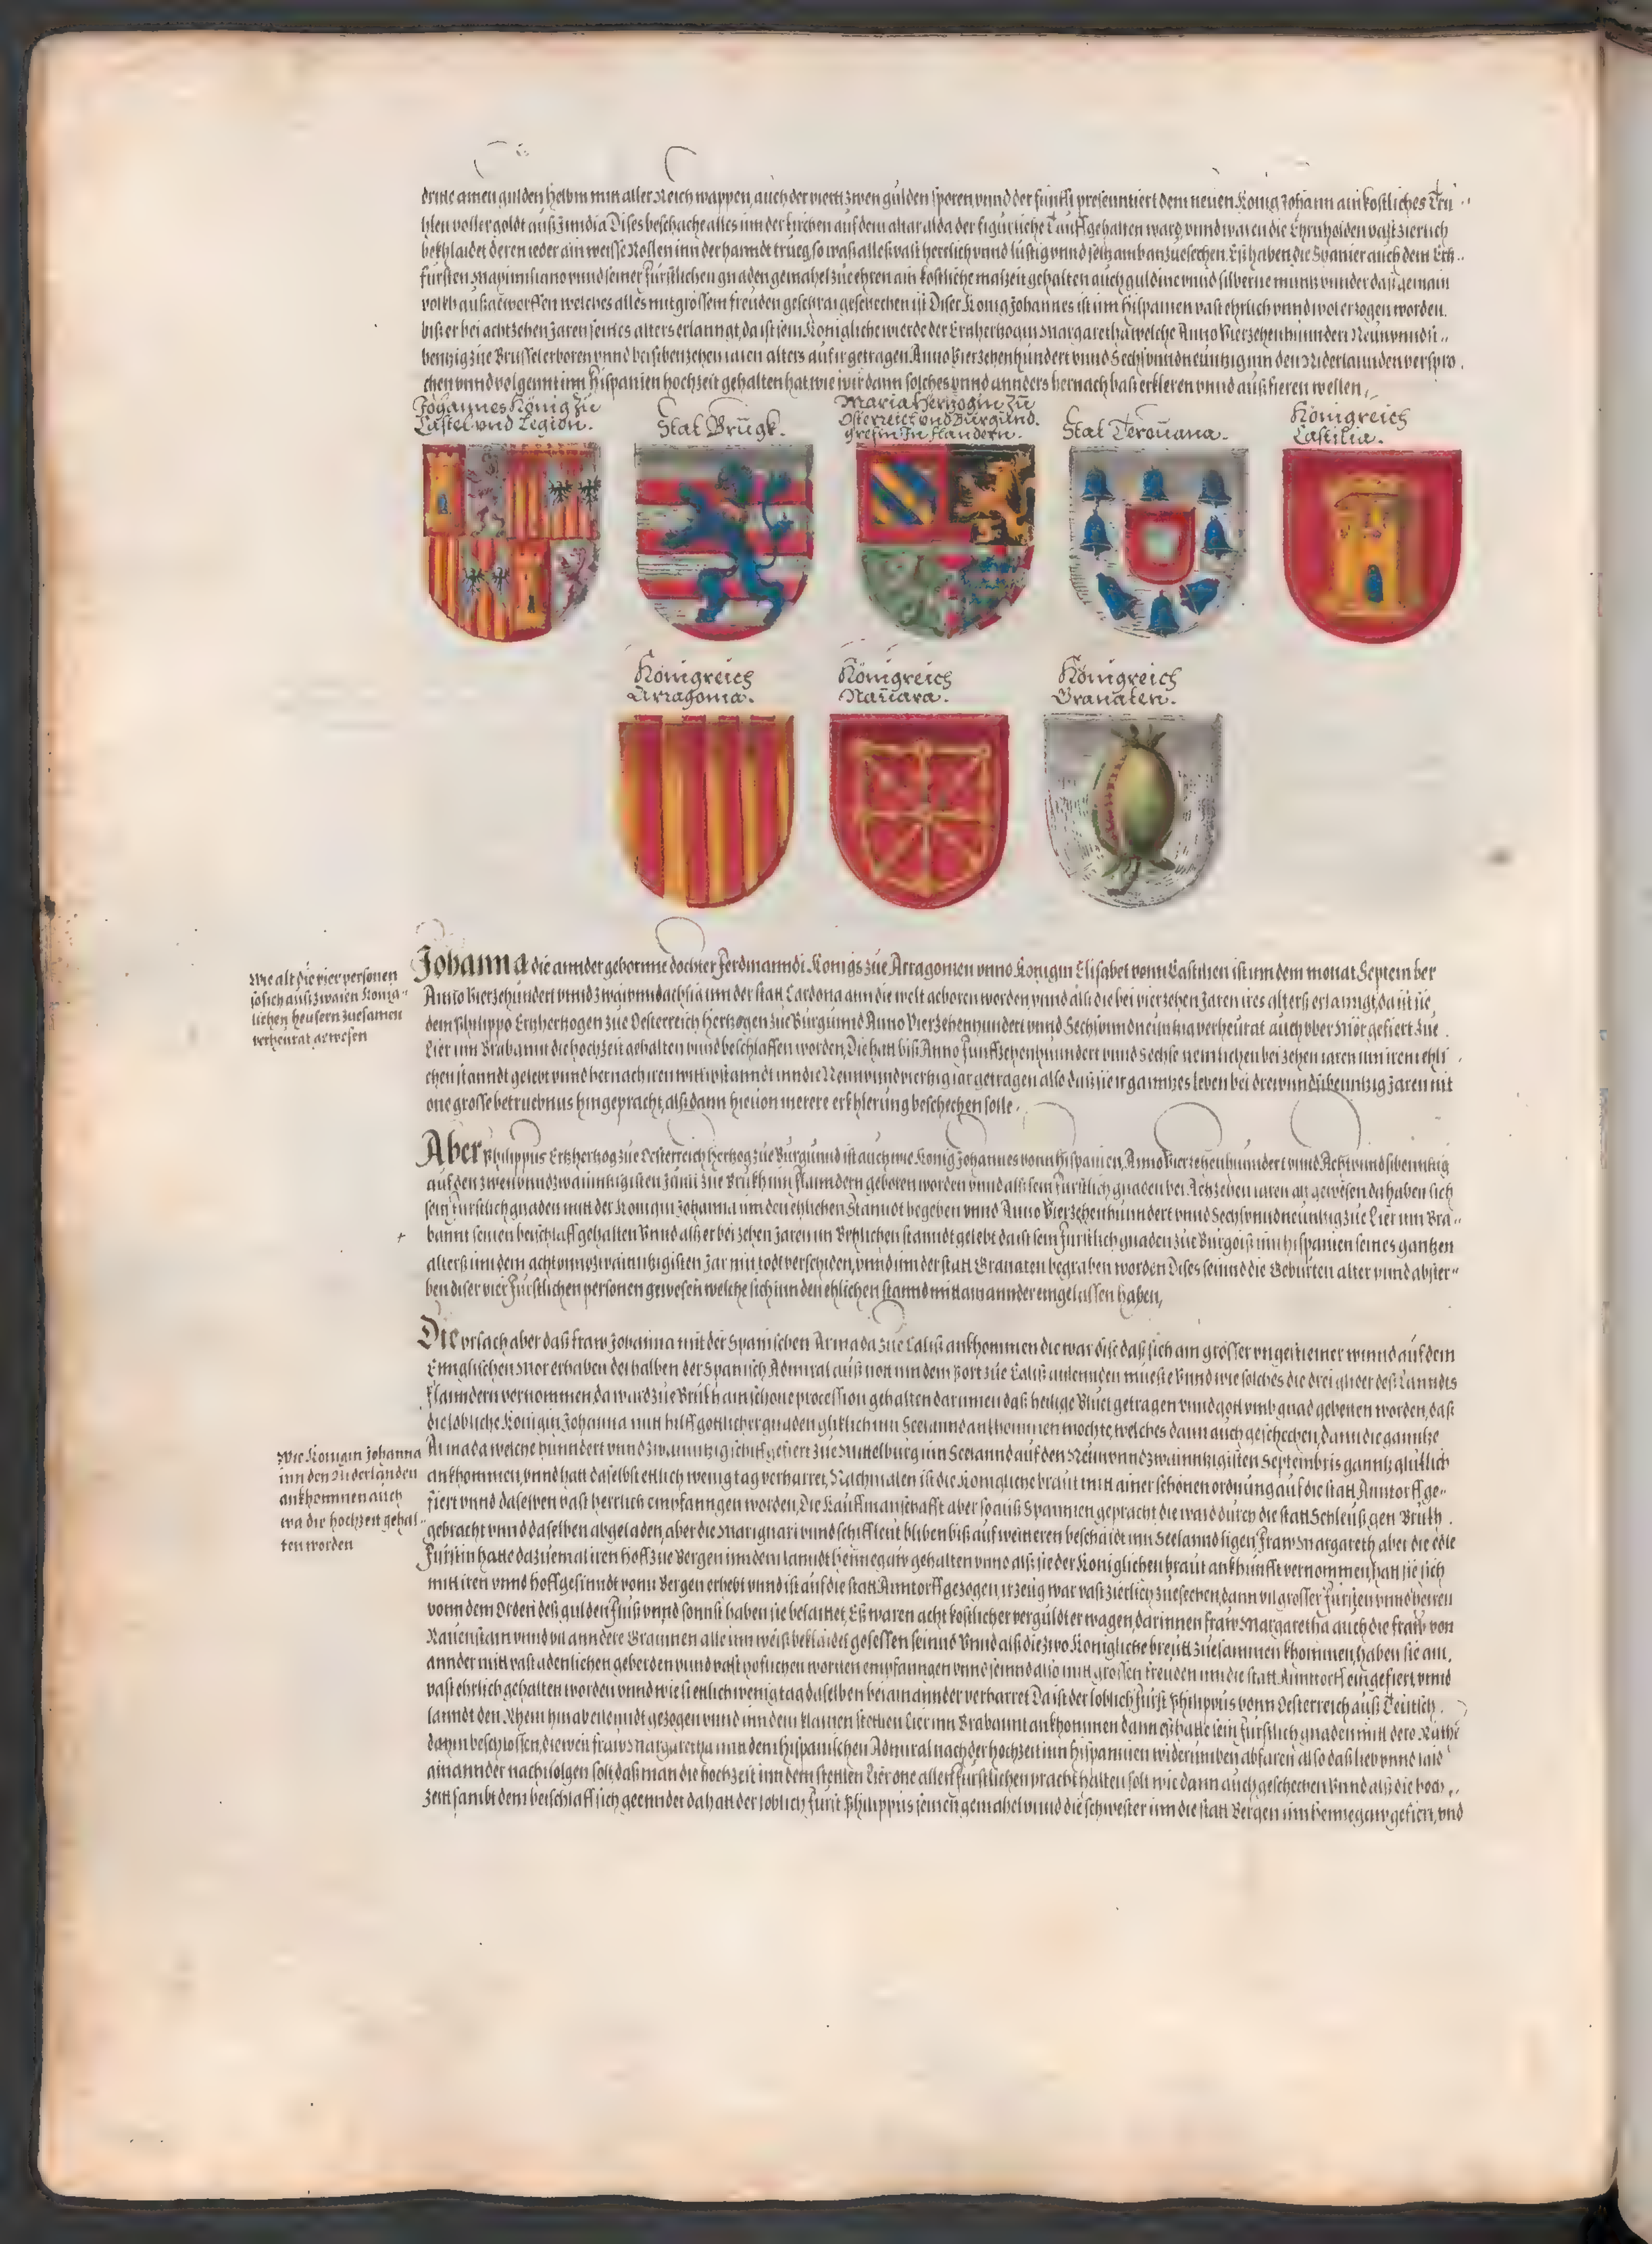 dritte ainen gulden helbm mitt aller Reich wappen, auch der viertt zwen gulden sporen vnnd der fünfft presenntiert dem neuen König Johann ain kostliches Trü
hlen voller goldt auß Jmndia Dises beschache alles inn der kirchen auf dem altar alda der figürliche Tauff gehalten ward, vnnd waren die Ehrnholden vast zierlich
bekhlaidet deren ieder ain weisse Rossen inn der hanndt trueg, so waß alleß vast herrlich vnnd lüstig vnnd seltzamb anzuesechen. Eß haben die Spanier auch dem Ertz
fürsten Maximiliano vnnd seiner Fürstlichen gnaden gemahel zue ehren ain kostliche malzeit gehalten auch guldine vnnd silberne muntz vnnder daß gemain
volkh außgeworffen welches alles mit grossem freuden geschrai geschechen ist Diser König Johannes ist inn Hispanien vast ehrlich vnnd wol erzogen worden.
biß er bei achtzehen Jaren seines alters erlanngt, da ist jem Königliche wierde der Ertzherzogin Margaretha welche Anno Vierzehenhündert Neün vnnd si
bentzig zue Brüssel erboren vnnd bei sibenzehen iaren alters auf ir getragen. Anno Vierzehenhündert vnnd Sechs vnnd neüntzig inn den Niderlannden verspro
chen vnnd volgennt inn Hispanien hochzeit gehalten hat, wie wir dann solches vnnd annders hernach baß erkleren vnnd außfieren wellen,
Johannes König zu
Castel vnd Legion.
Stat Brügk.
Maria Hertzogin zu
Osterreich vnd Burgund.
Grefin In flandern.
Stat Terouana.
Königreich
Castilia.
Königreich
Arragonia.
Königreich
Nauara.
Königreich
Granaten.
Wie alt die vier personen
so sich auß zwaien König
lichen heusern zuesamen
verheurat gewesen
Johanna die annder gebornne dochter Ferdinanndi Königs zue Arragonien vnnd Königin Elisabet vonn Castilien ist inn dem monat September
Anno Vierzehündert vnnd zwai vnnd achtzig inn der statt Cardona ann die welt geboren worden, vnnd alß die bei vierzehen Jaren ires alterß erlanngt, da ist sie
dem Philippo Ertzhertzogen zue Oesterreich Hertzogen zue Burgunnd Anno Vierzehenhundert vnnd Sechs vnnd neüntzig verheurat auch vber Mör gefiert zue
Lier inn Brabannt die hochzeit gehalten vnnd beschlaffen worden, Die hatt biß Anno Funffzehenhundert vnnd Sechse nemlichen bei zehen iaren inn irem ehli
chen stanndt gelebt vnnd hernach iren wittibstanndt inn die Neün vnnd viertzig iar getragen also daß sie ir ganntzes leben bei drei vnnd sibenntzig Jaren nit
one grosse betruebnus hingepracht, alß dann hieuon merere erkhlerung beschechen solle.
Aber Philippus Ertzhertzog zue Oesterreich Hertzog zue Burgunnd ist auch wie König Johannes vonn Hispanien, Anno Vierzehenhunndert vnnd Acht vnnd sibenntzig
auf den zwen vnnd zwainntzigisten Junii zue Brükh inn Flanndern geboren worden vnnd alß sein Fürstlich gnaden bei Achzehen iaren alt gewesen da haben sich
sein Fürstlich gnaden mitt der Königin Johanna inn den ehlichen Stanndt begeben vnnd Anno Vierzehenhunndert vnnd Sechs vnnd neüntzig zue Lier inn Bra
bannt seinen beischlaff gehalten Vnnd alß er bei zehen Jaren im Ehelichen stanndt gelebt da ist sein Fürstlich gnaden zue Burgoß inn Hispanien seines gantzen
alterß inn dem acht vnnd zwainntzigisten Jar mit todt verschiden, vnnd inn der statt Granaten begraben worden Dises seinnd die Geburten alter vnnd abster
ben diser vier Fürstlichen personen gewesen welche sich inn den ehlichen stannd mitt ainannder eingelassen haben,
Die vrsach aber daß fraw Johanna mit der Spanischen Armada zue Caliß ankhommen die war dise daß sich ain grosser vngestiemer winnd auf dem
Ennglischen Mör erhaben deßhalben der Spanisch Admiral auß nott inn dem Port zue Caliß anlennden mueste Vnnd wie solches die drei glider deß Lanndts
Flanndern vernommen, da ward zue Brükh ain schöne procession gehalten darinnen daß heilige Bluet getragen vnnd gott vmb gnad gebetten worden, daß
die löbliche Königin Johanna mitt hilff göttlicher gnaden glücklich inn Seelannd ankhommen möchte, welches dann auch geschechen, dann die ganntze
Wie Königin Johanna
inn den Niderlanden
ankhommen auch
wa die hochzeit gehal
ten worden
Armada welche hunndert vnnd zwainntzig schiff gefiert zue Mittelburg inn Seelannd auf den Neün vnnd zwainntzigisten Septembris ganntz glücklich
ankhommen, vnnd hatt daselbst ettlich wenig tag verharret, Nachmalen ist die Königliche braut mitt ainer schönen ordnung auf die statt Anntorff ge
fiert vnnd daselben vast herrlich empfanngen worden, Die Kauffmanschafft aber so auß Spannien gepracht die ward durch die statt Schleuß gen Brükh
gebracht vnnd daselben abgeladen, aber die Marignari vnnd schiffleut bliben biß auf weitteren beschaidt inn Seelannd ligen, Fraw Margareth aber die edle
Fürstin hatte dazuemal iren hoff zue Bergen inn dem lanndt hennegaw gehalten vnnd alß sie der Königlichen braut ankhunfft vernommen, hatt sie sich
mitt iren vnnd hoffgesinndt vonn Bergen erhebt vnnd ist auf die statt Anntorff gezogen, ir zeug war vast zierlich zuesechen, dann vil grosser Fürsten vnnd herren
vonn dem Orden deß gulden Fluß vnnd sonnst haben sie belaittet, Eß waren acht kostlicher verguldter wagen, darinnen fraw Margaretha auch die fraw von
Rauenstain vnnd vil anndere Grauinnen alle inn weiß bekhlaidet gesessen seinnd Vnnd alß die zwo Königliche breütt zuesammen khommen, haben sie ain
annder mitt vast adenlichen geberden vnnd vast höflichen wortten empfanngen vnnd seinnd also mitt grossen freuden inn die statt Anntorff eingefiert, vnnd
vast ehrlich gehalten worden vnnd wie sie ettlich wenig tag daselben bei ainannder verharret Da ist der loblich Fürst Philippus vonn Oesterreich auß Teütsch
lanndt den Rhein hinab eilenndt gezogen vnnd inn dem klainen stettlen Lier inn Brabannt ankhommen dann eß hatte sein Fürstlich gnaden mitt dero Räthe
dahin beschlossen, dieweil fraw Margaretha mitt dem Hispanischen Admiral nach der hochzeit inn Hispannien widerumben abfaren also daß lieb vnnd laid
ainannder nachuolgen solt, daß man die hochzeit inn dem stettlen Lier one allen fürstlichen pracht halten solt wie dann auch geschechen Vnnd alß die hoch
zeitt sambt dem beischlaff sich geenndet da hatt der löblich Fürst Philippus seinen gemahel vnnd die schwester inn die statt Bergen inn hennegaw gefiert, vnd